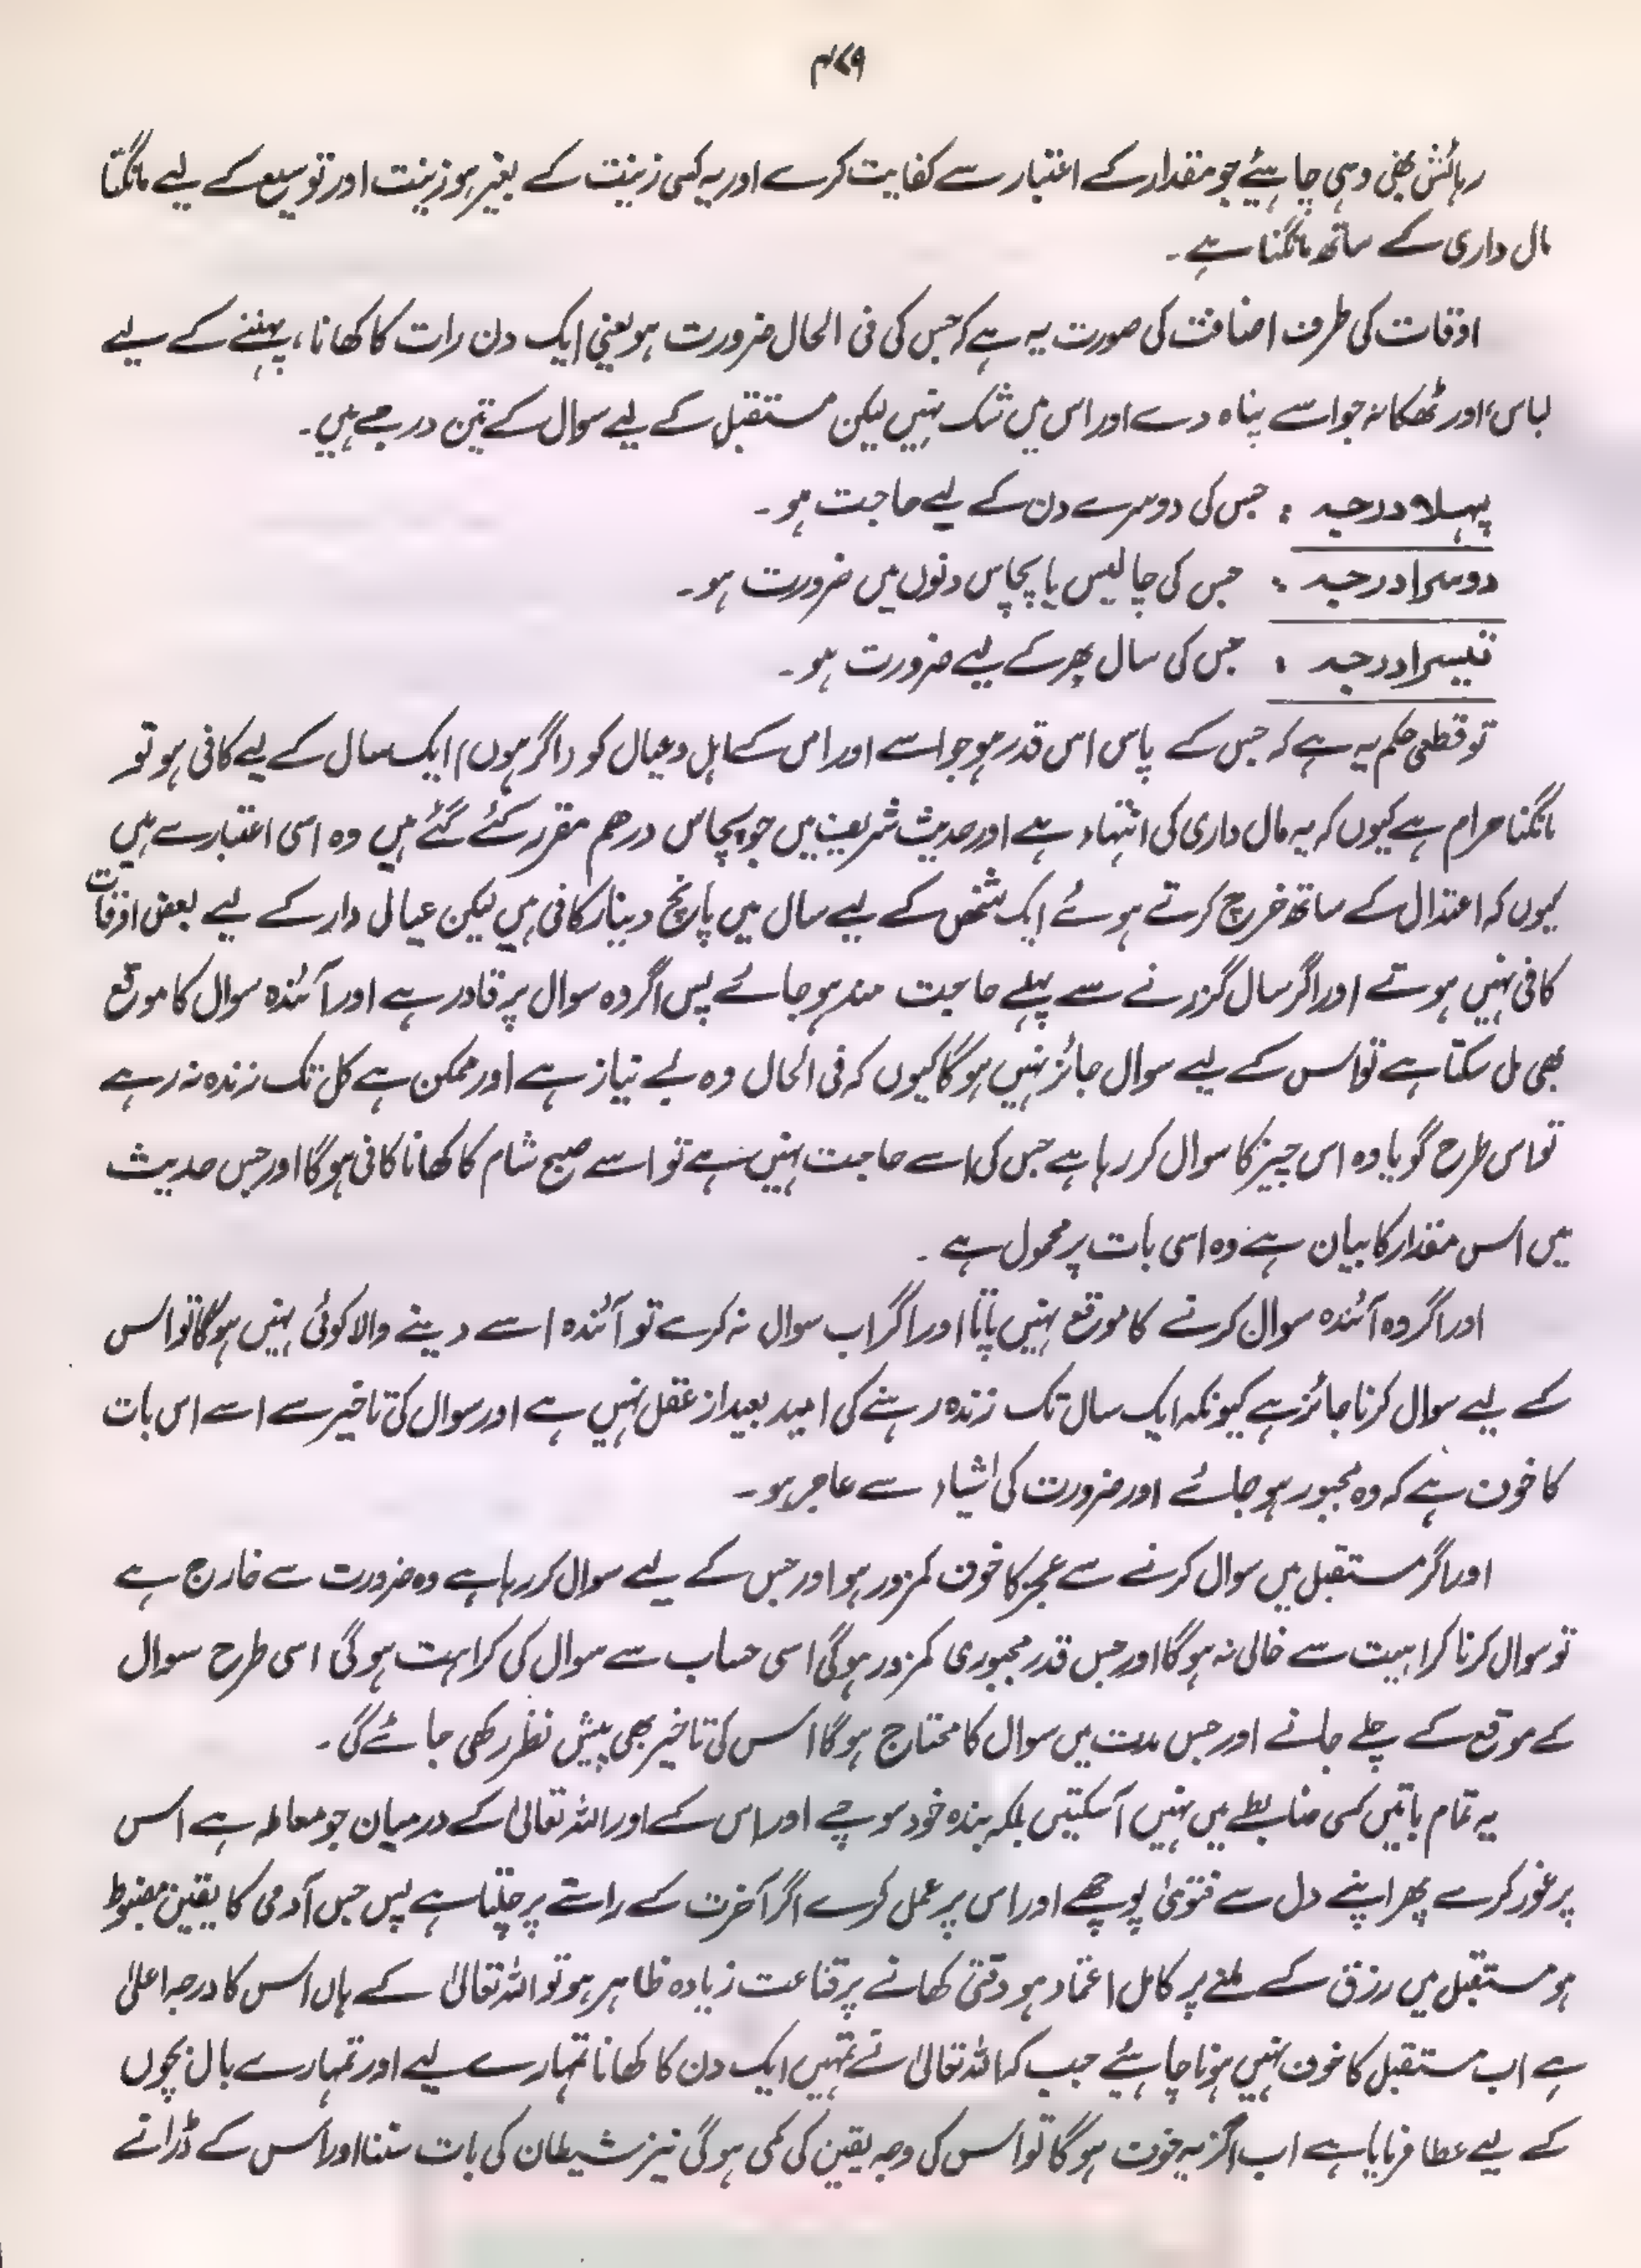 ۴۷۹
رہائش بھی وہی چاہئے جو مقدار کے اعتبار سے کفایت کرے اور یہ کسی زینت کے بغیر ہو زینت اور توسیع کے لیے مانگنا
مال داری کے ساتھ مانگنا ہے۔
اوقات کی طرف اضافت کی صورت یہ ہے کہ جس کی فی الحال ضرورت ہو یعنی ایک دن رات کا کھانا، پہننے کے لیے
لباس، اور ٹھکانہ جو اسے پناہ دے اور اس میں شک نہیں لیکن مستقبل کے لیے سوال کے تین درجے ہیں۔
پہلا درجہ : جس کی دوسرے دن کے لیے حاجت ہو۔
دوسرا درجہ : جس کی چالیس یا پچاس دنوں میں ضرورت ہو۔
تیسرا درجہ : جس کی سال بھر کے لیے ضرورت ہو۔
تو قطعی حکم یہ ہے کہ جس کے پاس اس قدر ہو جو اسے اور اس کے اہل وعیال کو (اگر ہوں) ایک سال کے لیے کافی ہو تو
مانگنا حرام ہے کیوں کہ یہ مال داری کی انتہاء ہے اور حدیث شریف میں جو پچاس درھم مقرر کئے گئے ہیں وہ اسی اعتبار سے ہیں
کیوں کہ اعتدال کے ساتھ خرچ کرتے ہوئے ایک شخص کے لیے سال میں پانچ دینار کافی ہیں لیکن عیال دار کے لیے بعض اوقات
کافی نہیں ہوتے اور اگر سال گزرنے سے پہلے حاجت مند ہو جائے پس اگر وہ سوال پر قادر ہے اور آئندہ سوال کا موقع
بھی مل سکتا ہے تو اس کے لیے سوال جائز نہیں ہوگا کیوں کہ فی الحال وہ بے نیاز ہے اور ممکن ہے کل تک زندہ نہ رہے
تو اس طرح گویا وہ اس چیز کا سوال کر رہا ہے جس کی اسے حاجت نہیں ہے تو اسے صبح شام کا کھانا کافی ہوگا اور جس حدیث
میں اس مقدار کا بیان ہے وہ اسی بات پر محمول ہے۔
اور اگر وہ آئندہ سوال کرنے کا موقع نہیں پاتا اور اگر اب سوال نہ کرے تو آئندہ اسے دینے والا کوئی نہیں ہوگا تو اس
کے لیے سوال کرنا جائز ہے کیونکہ ایک سال تک زندہ رہنے کی امید بعید از عقل نہیں ہے اور سوال کی تاخیر سے اسے اس بات
کا خوف ہے کہ وہ مجبور ہو جائے اور ضرورت کی اشیاء سے عاجز ہو۔
اور اگر مستقبل میں سوال کرنے سے عجز کا خوف کمزور ہو اور جس کے لیے سوال کر رہا ہے وہ ضرورت سے خارج ہے
تو سوال کرنا کراہیت سے خالی نہ ہوگا اور جس قدر مجبوری کمزور ہوگی اسی حساب سے سوال کی کراہت ہوگی اسی طرح سوال
کے موقع کے چلے جانے اور جس مدت میں سوال کا محتاج ہوگا اس کی تاخیر بھی پیش نظر رکھی جائے گی۔
یہ تمام باتیں کسی ضابطے میں نہیں آسکتیں بلکہ بندہ خود سوچے اور اس کے اور اللہ تعالیٰ کے درمیان جو معاملہ ہے اس
پر غور کرے پھر اپنے دل سے فتویٰ پوچھے اور اس پر عمل کرے اگر آخرت کے راستے پر چلتا ہے پس جس آدمی کا یقین مضبوط
ہو مستقبل میں رزق کے ملنے پر کامل اعتماد ہو وقتی کھانے پر قناعت زیادہ ظاہر ہو تو اللہ تعالیٰ کے ہاں اس کا درجہ اعلیٰ
ہے اب مستقبل کا خوف نہیں ہونا چاہئے جب کہ اللہ تعالیٰ نے تمہیں ایک دن کا کھانا تمہارے لیے اور تمہارے بال بچوں
کے لیے عطا فرمایا ہے اب اگر یہ خوف ہوگا تو اس کی وجہ یقین کی کمی ہوگی نیز شیطان کی بات سننا اور اس کے ڈرانے